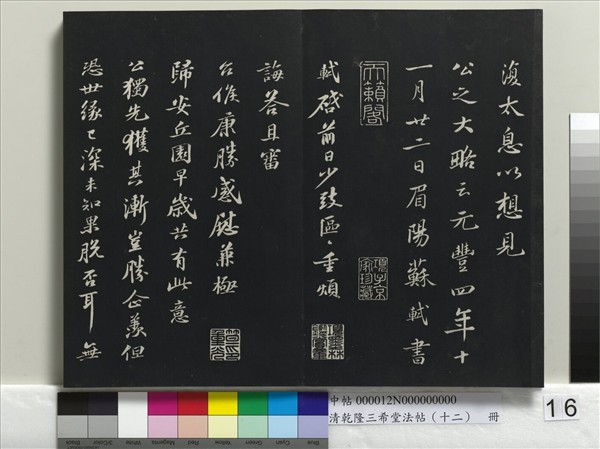 復太息以想見
公之大略云元豐四年十
一月廿二日眉陽蘇軾書
天籟閣
項子京家珍藏
軾啓前日少致區〻重煩
誨答且審
台候康勝感慰兼極
歸安丘園早歲共有此意
公獨先獲其漸豈勝企羨但
恐世緣已深未知果脫否耳無
中帖 000012N000000000
清乾隆三希堂法帖(十二) 冊
16
Blue
Cyan
Green
Yellow
Red
Magenta
White
3/Color
Black